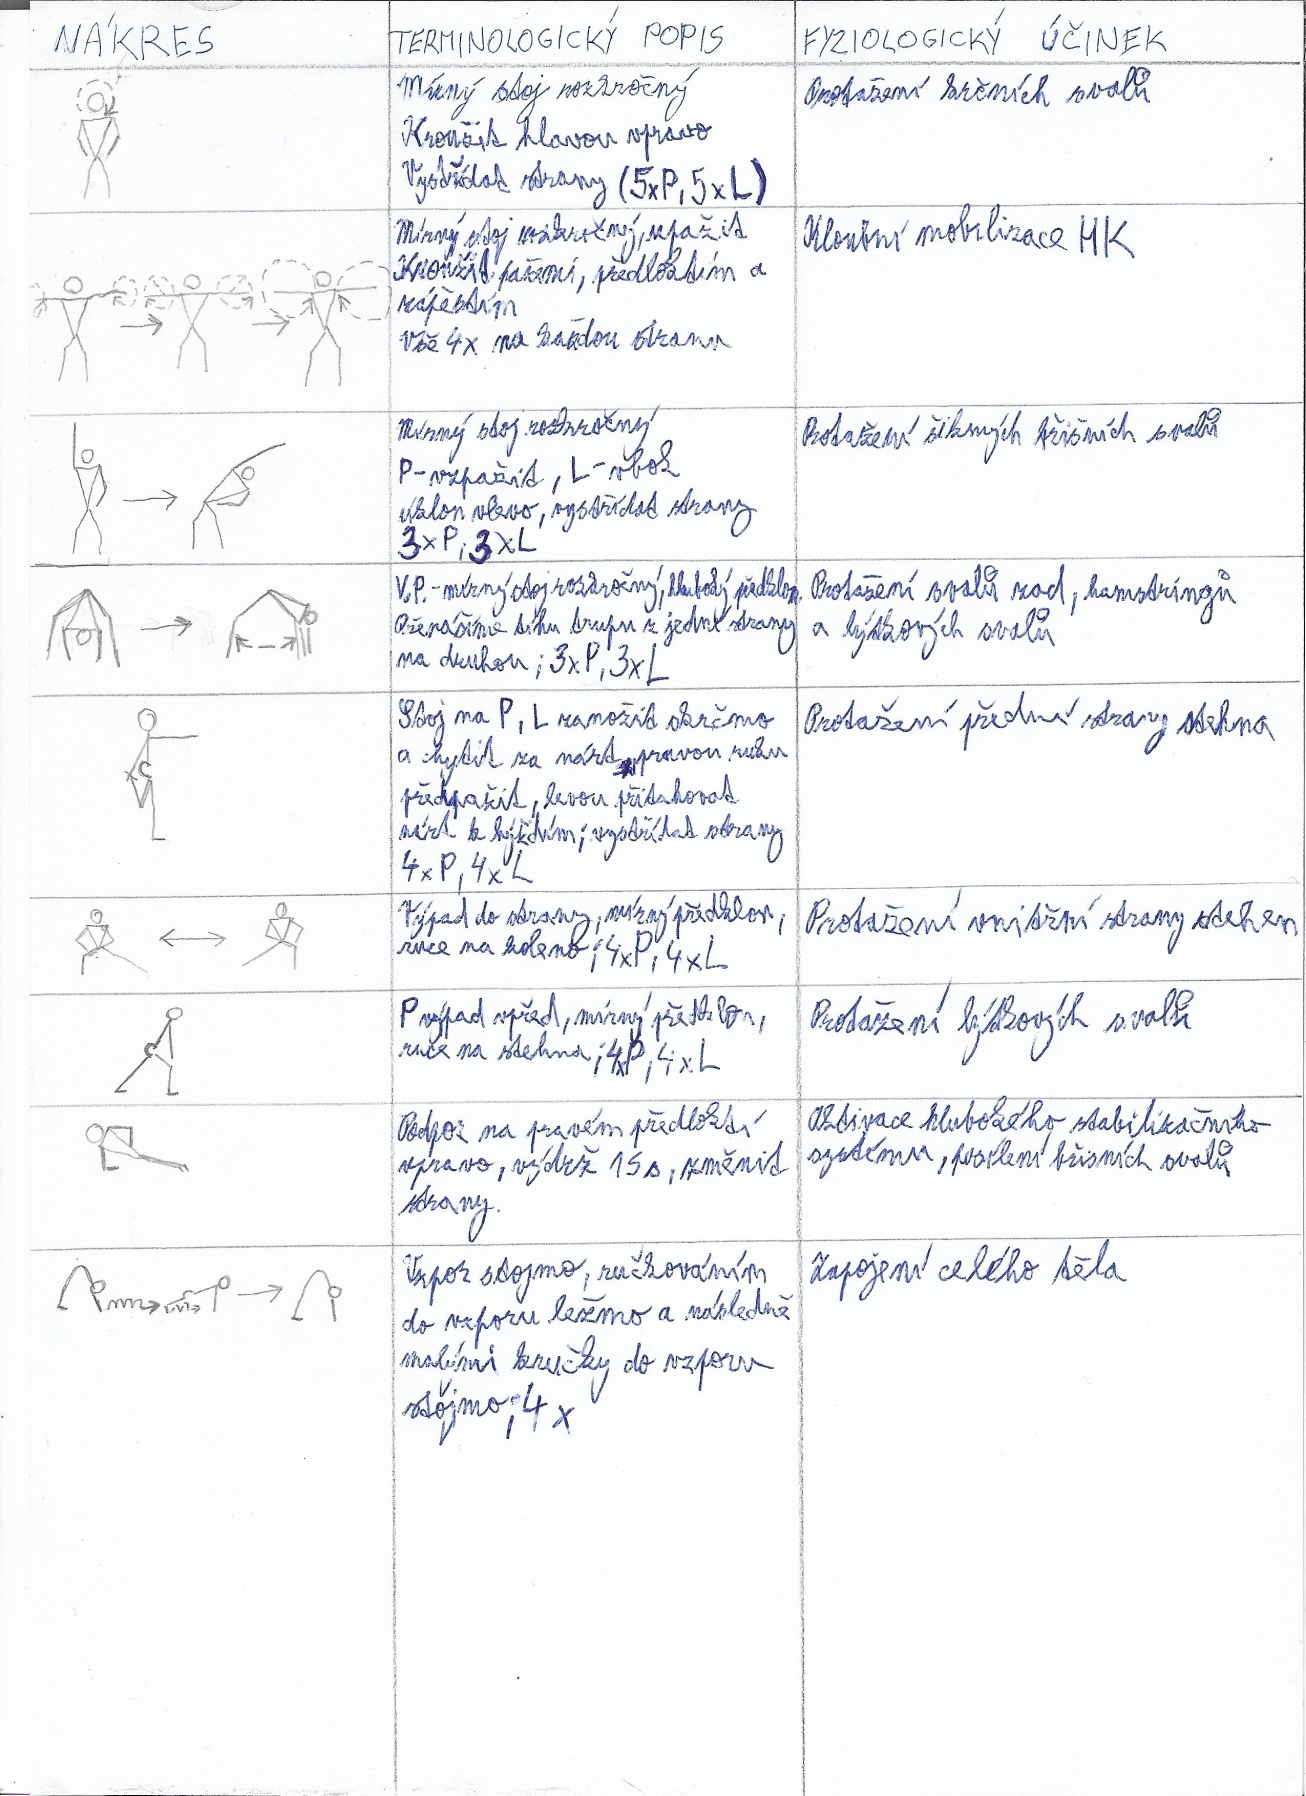 NÁKRES
TERMINOLOGICKÝ POPIS
FYZIOLOGICKÝ ÚČINEK
Mírný stoj rozkročný
Kroužit hlavou vpravo
Vystřídat strany (5xP, 5xL)
Protažení krčních svalů
Mírný stoj rozkročný, upažit
Kroužit pažemi, předloktím a
zápěstím
Vše 4x na každou stranu
Kloubní mobilizace HK
Mírný stoj rozkročný
P-vzpažit, L-v bok
úklon vlevo, vystřídat strany
3xP, 3xL
Protažení šikmých břišních svalů
V.P.-mírný stoj rozkročný, hluboký předklon.
Přenášíme tíhu trupu z jedné strany
na druhou; 3xP, 3xL
Protažení svalů zad, hamstringů
a lýtkových svalů
Stoj na P, L zanožit skrčmo
a chytit za nárt pravou ruku
předpažit, levou přitahovat
nárt k hýždím; vystřídat strany
4xP, 4xL
Protažení přední strany stehna
Výpad do strany, mírný předklon,
ruce na koleno; 4xP, 4xL
Protažení vnitřní strany stehen
P výpad vpřed, mírný předklon,
ruce na stehna; 4xP, 4xL
Protažení lýtkových svalů
Podpor na pravém předloktí
vpravo, výdrž 15s, změnit
strany.
Aktivace hlubokého stabilizačního
systému, posílení břišních svalů
Vzpor stojmo, ručkováním
do vzporu ležmo a následně
malými krůčky do vzporu
stojmo; 4x
Zapojení celého těla